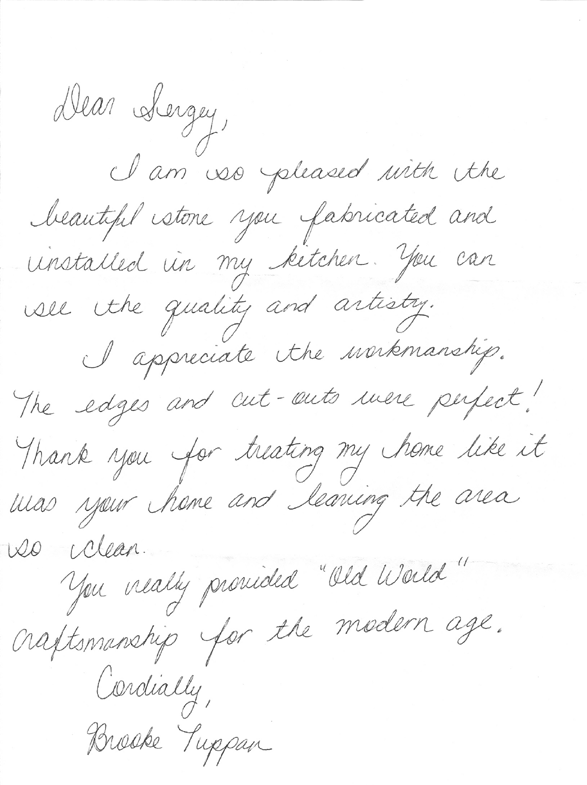 Dear Sergey,
I am so pleased with the
beautiful stone you fabricated and
installed in my kitchen. You can
see the quality and artistry.
I appreciate the workmanship.
The edges and cut-outs were perfect!
Thank you for treating my home like it
was your home and leaving the area
so clean.
You really provided "Old World"
craftsmanship for the modern age.
Cordially,
Brooke Tuppan